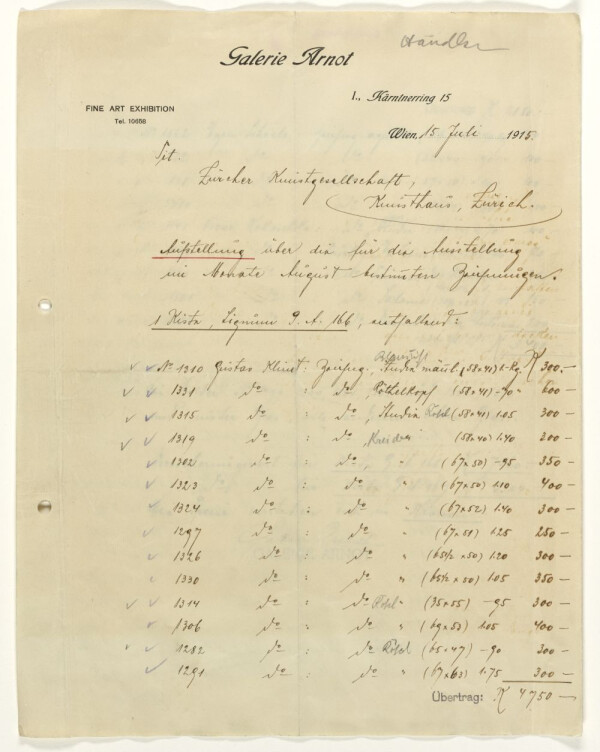 Händler
Galerie Arnot
I., Kärntnerring 15
FINE ART EXHIBITION
Tel. 10658
Wien, 15 Juli 1915.
Tit.
Zürcher Kunstgesellschaft,
Kunsthaus, Zürich.
Aufstellung über die für die Ausstellung
im Monate August bestimmten Zeichnungen.
1 Kiste, Signum G. A. 166, enthaltend:
No 1210 Gustav Klimt: Zeichng. Bleistift Studie männl. (58x41) K 300.-
1331 do : do Röthelkopf (58x41) -70 600 -
1315 do : do, Studie Rötel (58x41) 1.05 300 -
1319 do : do Kreide " (58x40) 1.40 300 -
1302 do : do " (67x50) -95 350 -
1323 do : do " (67x50) 1.10 400 -
1324 do : do " (67x52) 1.40 300 -
1297 do : do " (67x51) 1.25 250 -
1326 do : do " (65½x50) 1.20 300 -
1330 do : do " (65½x50) 1.05 350 -
1314 do : do Rötel " (35x55) -95 300 -
1306 do : do " (69x53) 1.05 400 -
1282 do : do Rötel (65x47) -90 300 -
1291 do : do " (67x63) 1.75 300 -
Übertrag: K 4750 -